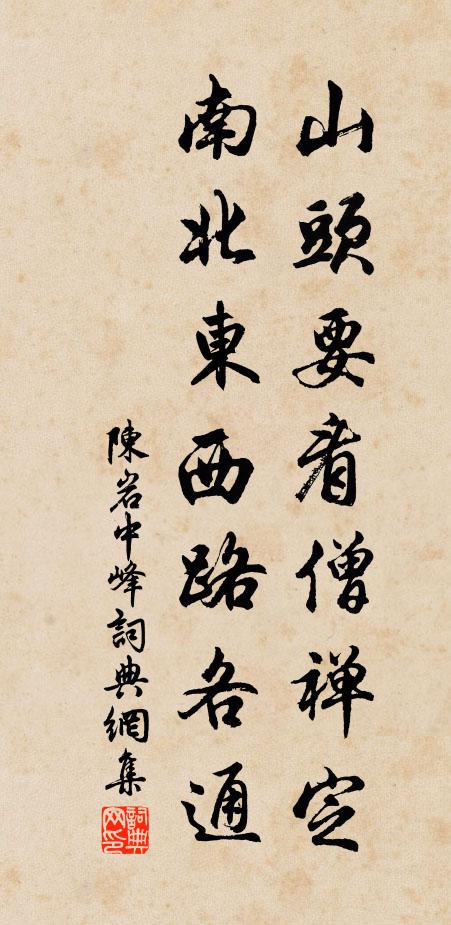 山頭要看僧禅定
南北東西路各通
陳岩中峰詞典網集
詞典网印